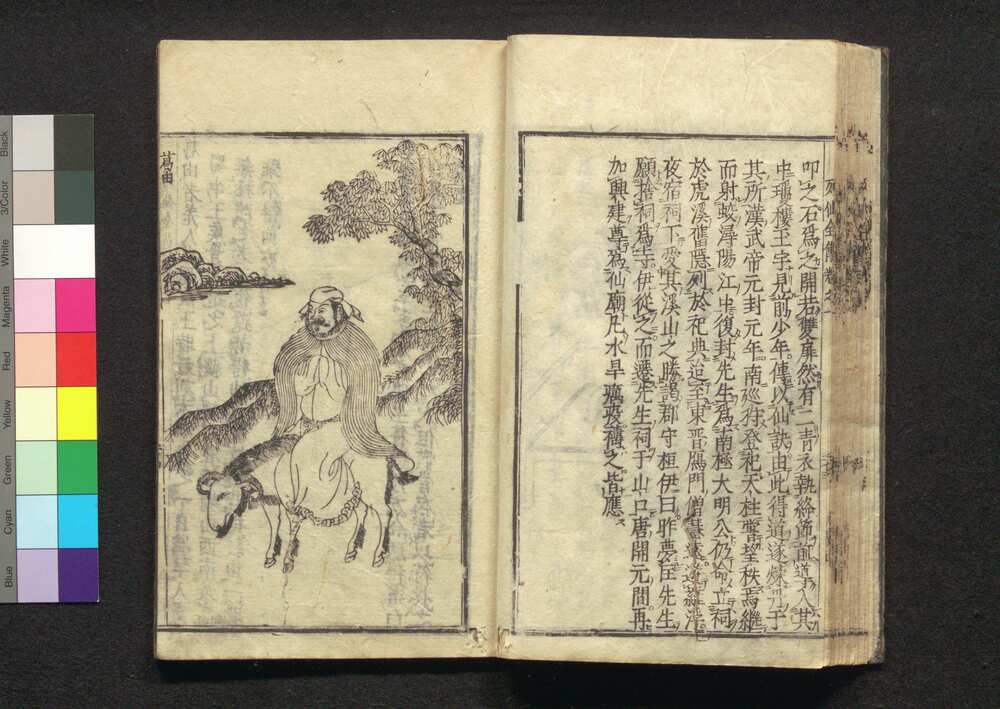 叩之石爲之開若雙扉然有二青衣執絳節前導入其
中瓊樓玉宇見前少年傳以仙訣由此得道遂煉丹于
其所漢武帝元封元年南廵狩登祀天柱嘗望秩焉繼
而射蛟潯陽江中復封先生爲南極大明公仍命立祠
於虎溪舊隱列於祀典迨至東晋鴈門僧慧遠遊羅浮
夜宿祠下愛其溪山之勝謁郡守桓伊曰昨夢匡先生
願捨祠爲寺伊從之而遷先生祠于山口唐開元間再
加興建尊爲仙廟凡水旱癘疫禱之皆應
葛由
Black
3/Color
White
Magenta
Red
Yellow
Green
Cyan
Blue